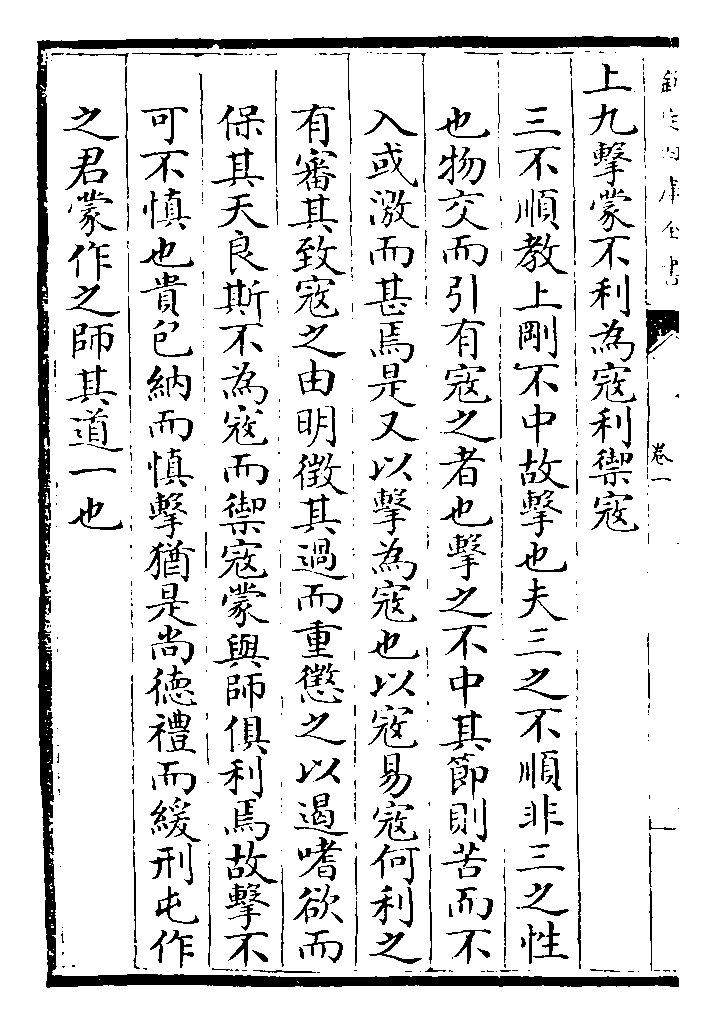 欽定四庫全書
卷一
上九擊蒙不利為寇利禦寇
三不順教上剛不中故擊也夫三之不順非三之性
也物交而引有寇之者也擊之不中其節則苦而不
入或激而甚焉是又以擊為寇也以寇易寇何利之
有審其致寇之由明徵其過而重懲之以遏嗜欲而
保其天良斯不為寇而禦寇蒙與師俱利焉故擊不
可不慎也貴包納而慎擊猶是尚德禮而緩刑屯作
之君蒙作之師其道一也